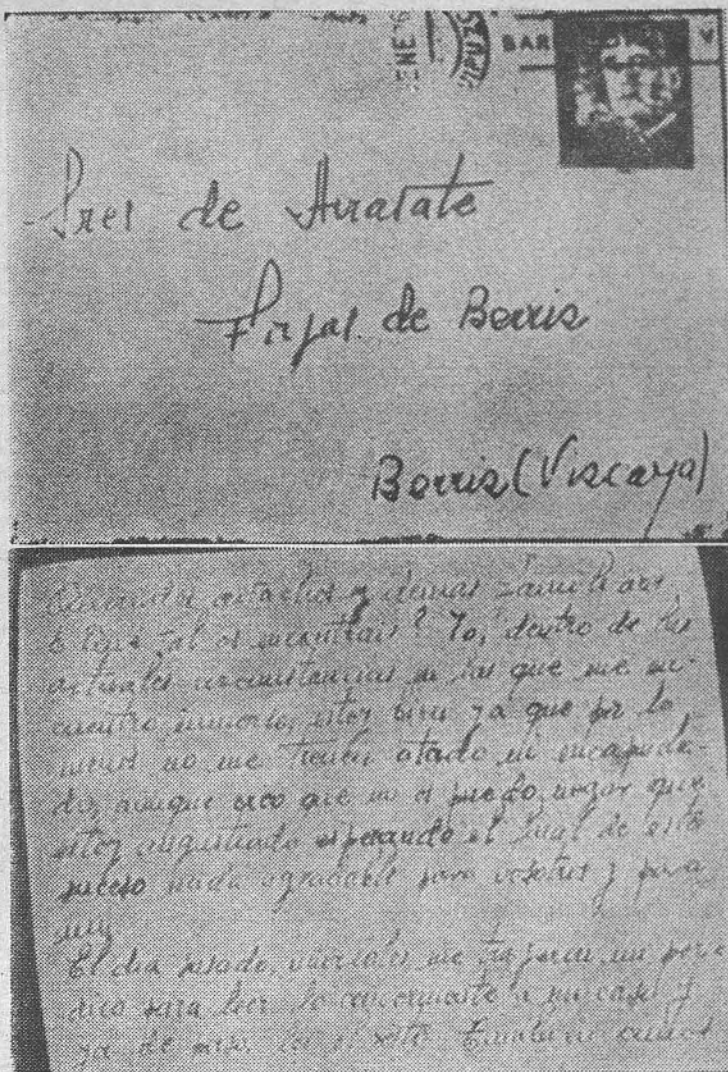 ENE
BAR
Sres de Arratate
Firjas. de Berris
Berris (Viscaya)
y demas familiares,
¿Qué tal os encontrais? Yo, dentro de las
actuales circunstancias en las que me en-
cuentro inmerso, estoy bien ya que por lo
menos no me tienen atado ni encapucha-
do, aunque creo que no os puedo negar que
estoy angustiado esperando el final de este
suceso nada agradable para vosotros y para
mi.
El dia pasado, miercoles me trajeron un perio-
dico para leer lo concerniente a mi caso y
ya de paso leí el resto. Tambien